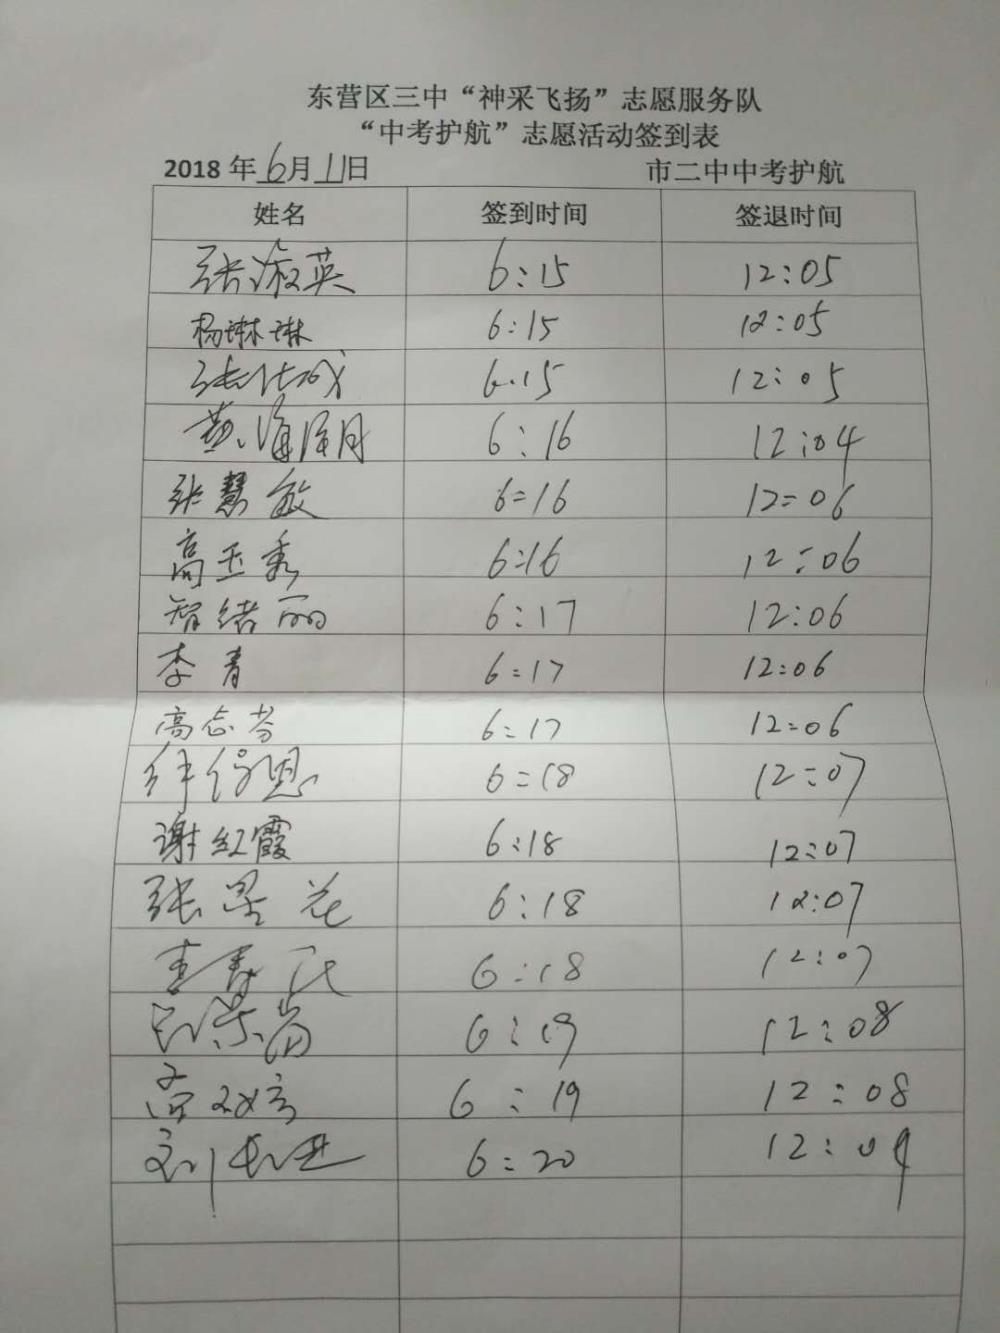 东营区三中“神采飞扬”志愿服务队
“中考护航”志愿活动签到表
2018 年 6 月 11 日 市二中中考护航
姓名 签到时间 签退时间
张淑英 6:15 12:05
杨琳琳 6:15 12:05
张 6.15 12:05
黄海月 6:16 12:04
张慧敏 6:16 12:06
高玉秀 6:16 12:06
智绪丽 6:17 12:06
李青 6:17 12:06
高志芬 6:17 12:06
6:18 12:07
谢红霞 6:18 12:07
张 花 6:18 12:07
李春 6:18 12:07
6:19 12:08
高 6:19 12:08
刘 6:20 12:09